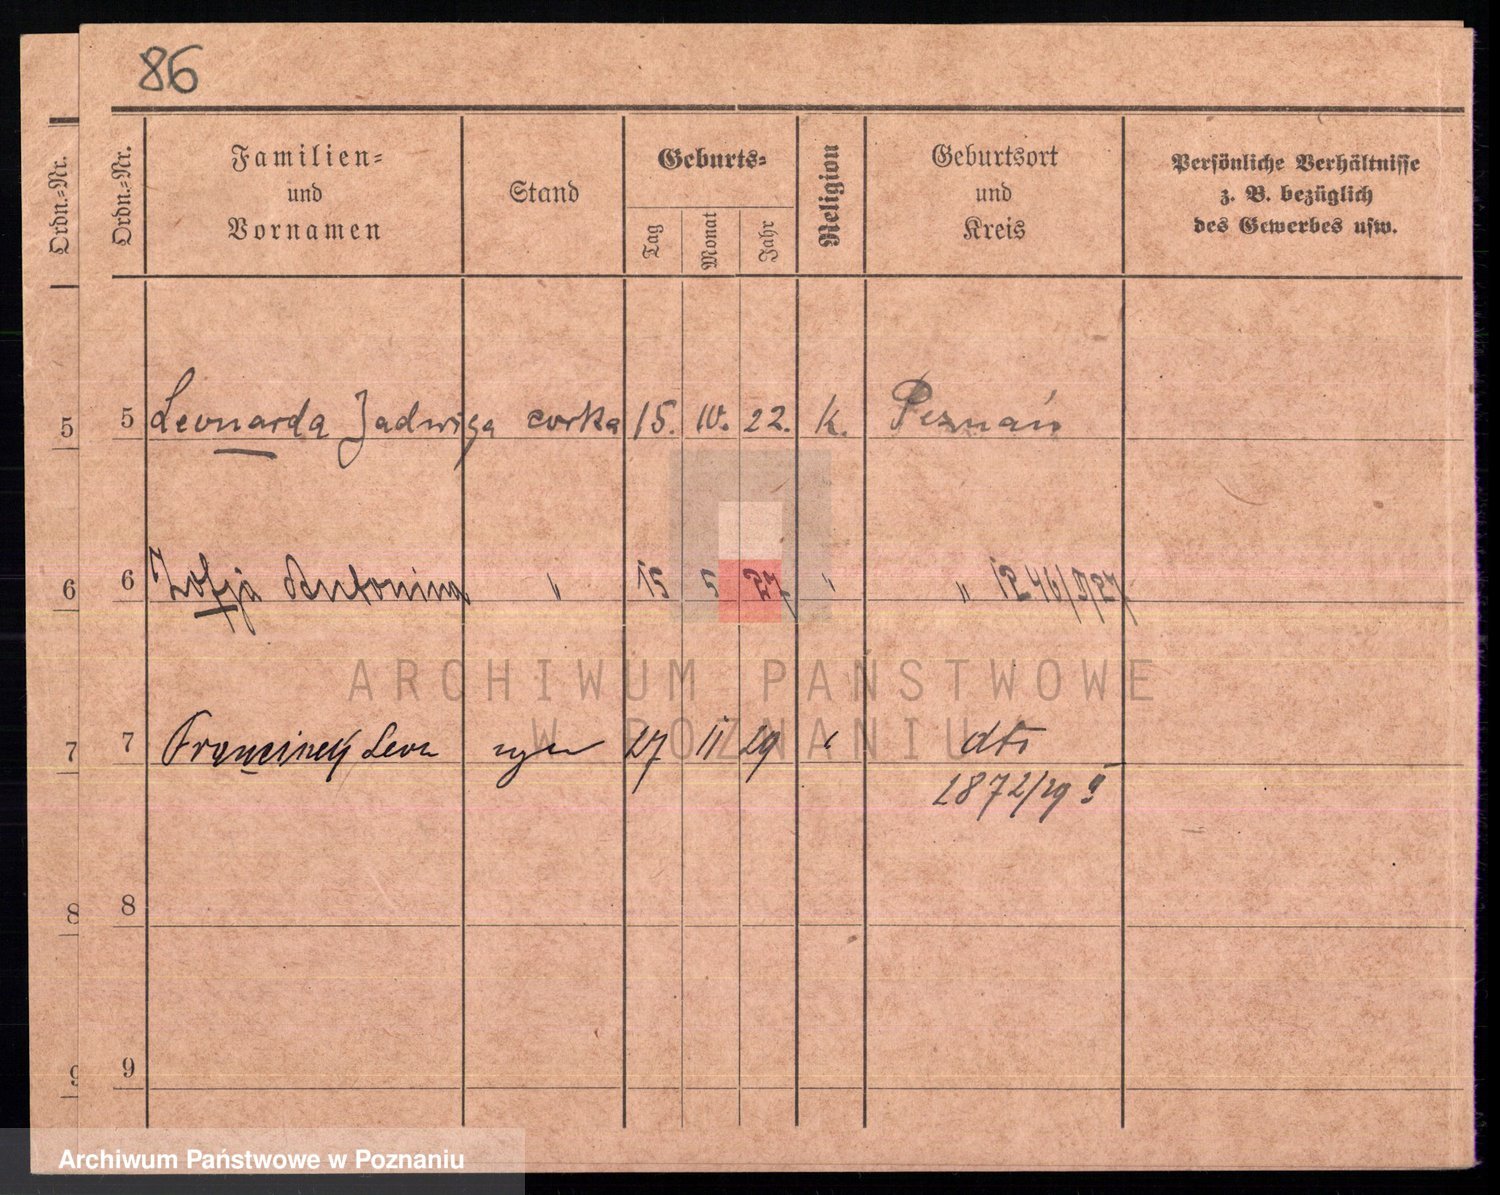 86
Ordn.-Nr.
Ordn.-Nr.
Familien-
und
Vornamen
Stand
Geburts-
Tag
Monat
Jahr
Religion
Geburtsort
und
Kreis
Persönliche Verhältnisse
z. B. bezüglich
des Gewerbes usw.
5 5 Leonarda Jadwiga corka 15. 10. 22. k. Poznań
6 6 Zofja Antonina " 15 5 27 " "
ARCHIWUM PAŃSTWOWE
W POZNANIU
7 7 Franciszek Leon syn 27 II 29 " dto
1872/29
8 8
9 9
Archiwum Państwowe w Poznaniu